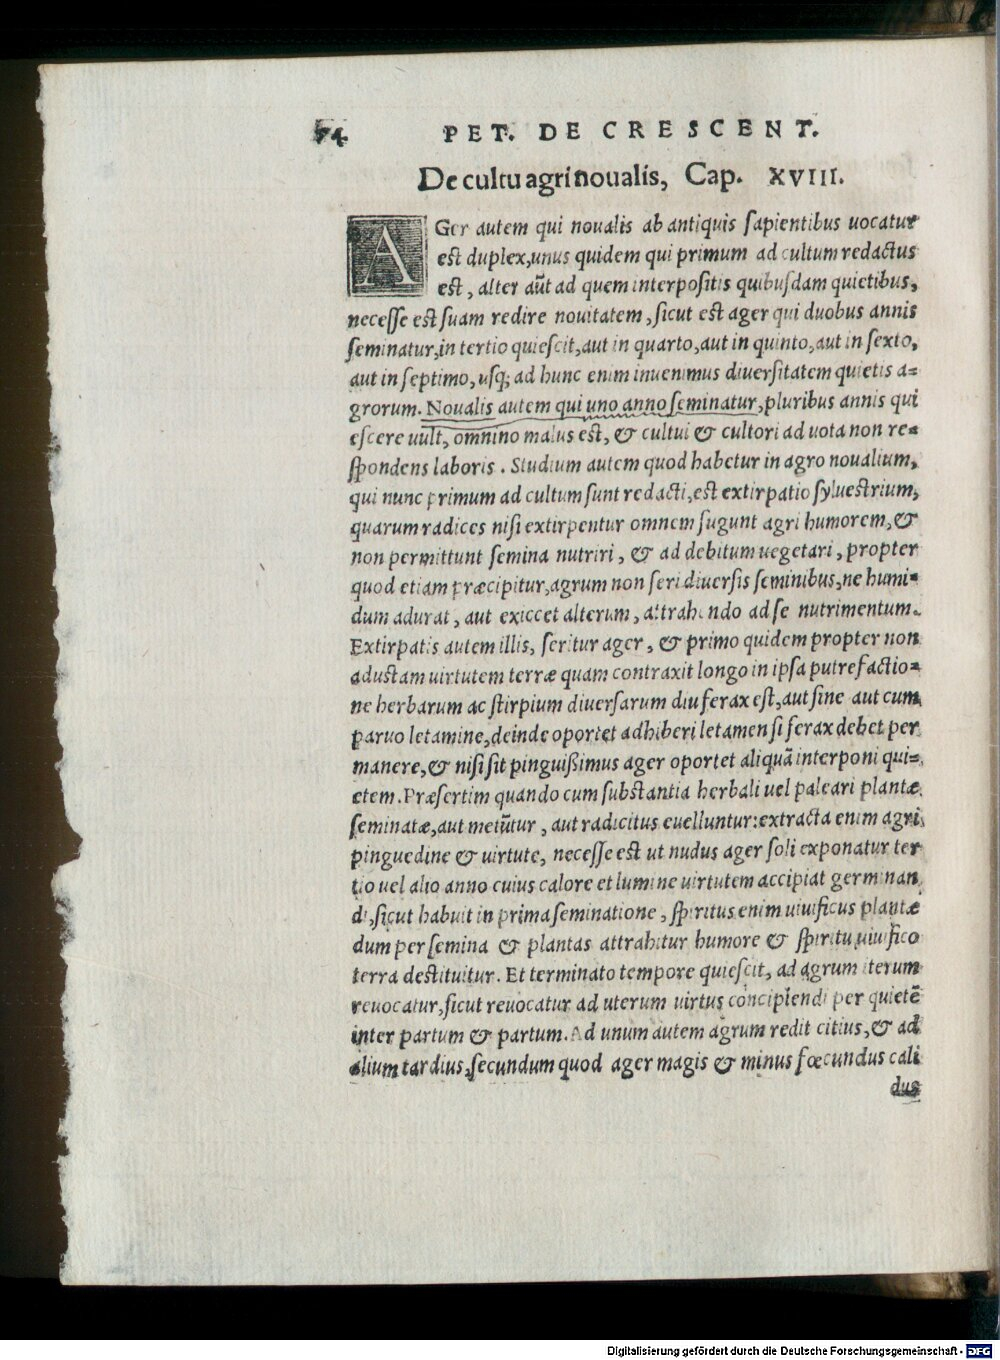 74
PET. DE CRESCENT.
De cultu agri noualis, Cap. XVIII.
AGer autem qui noualis ab antiquis sapientibus uocatur
est duplex, unus quidem qui primum ad cultum redactus
est, alter aũt ad quem interpositis quibusdam quietibus,
necesse est suam redire nouitatem, sicut est ager qui duobus annis
seminatur, in tertio quiescit, aut in quarto, aut in quinto, aut in sexto,
aut in septimo, usq; ad hunc enim inuenimus diuersitatem quietis a=
grorum. Noualis autem qui uno anno seminatur, pluribus annis qui
escere uult, omnino malus est, & cultui & cultori ad uota non re=
spondens laboris. Studium autem quod habetur in agro noualium,
qui nunc primum ad cultum sunt redacti, est extirpatio syluestrium,
quarum radices nisi extirpentur omnem sugunt agri humorem, &
non permittunt semina nutriri, & ad debitum uegetari, propter
quod etiam præcipitur, agrum non seri diuersis seminibus, ne humi=
dum adurat, aut exiccet alterum, attrahendo ad se nutrimentum.
Extirpatis autem illis, seritur ager, & primo quidem propter non
adustam uirtutem terræ quam contraxit longo in ipsa putrefactio=
ne herbarum ac stirpium diuersarum diu ferax est, aut sine aut cum
paruo letamine, deinde oportet adhiberi letamen si ferax debet per
manere, & nisi sit pinguißimus ager oportet aliquã interponi qui=
etem. Præsertim quando cum substantia herbali uel paleari plantæ
seminatæ, aut metũtur, aut radicitus euelluntur: extracta enim agri
pinguedine & uirtute, necesse est ut nudus ager soli exponatur ter
tio uel alio anno cuius calore et lumine uirtutem accipiat germinan
di, sicut habuit in prima seminatione, spiritus enim uiuificus plantæ
dum per semina & plantas attrahitur humore & spiritu uiuifico
terra destituitur. Et terminato tempore quiescit, ad agrum iterum
reuocatur, sicut reuocatur ad uterum uirtus concipiendi per quietẽ
inter partum & partum. Ad unum autem agrum redit citius, & ad
alium tardius, secundum quod ager magis & minus fœcundus cali
dus
Digitalisierung gefördert durch die Deutsche Forschungsgemeinschaft - DFG